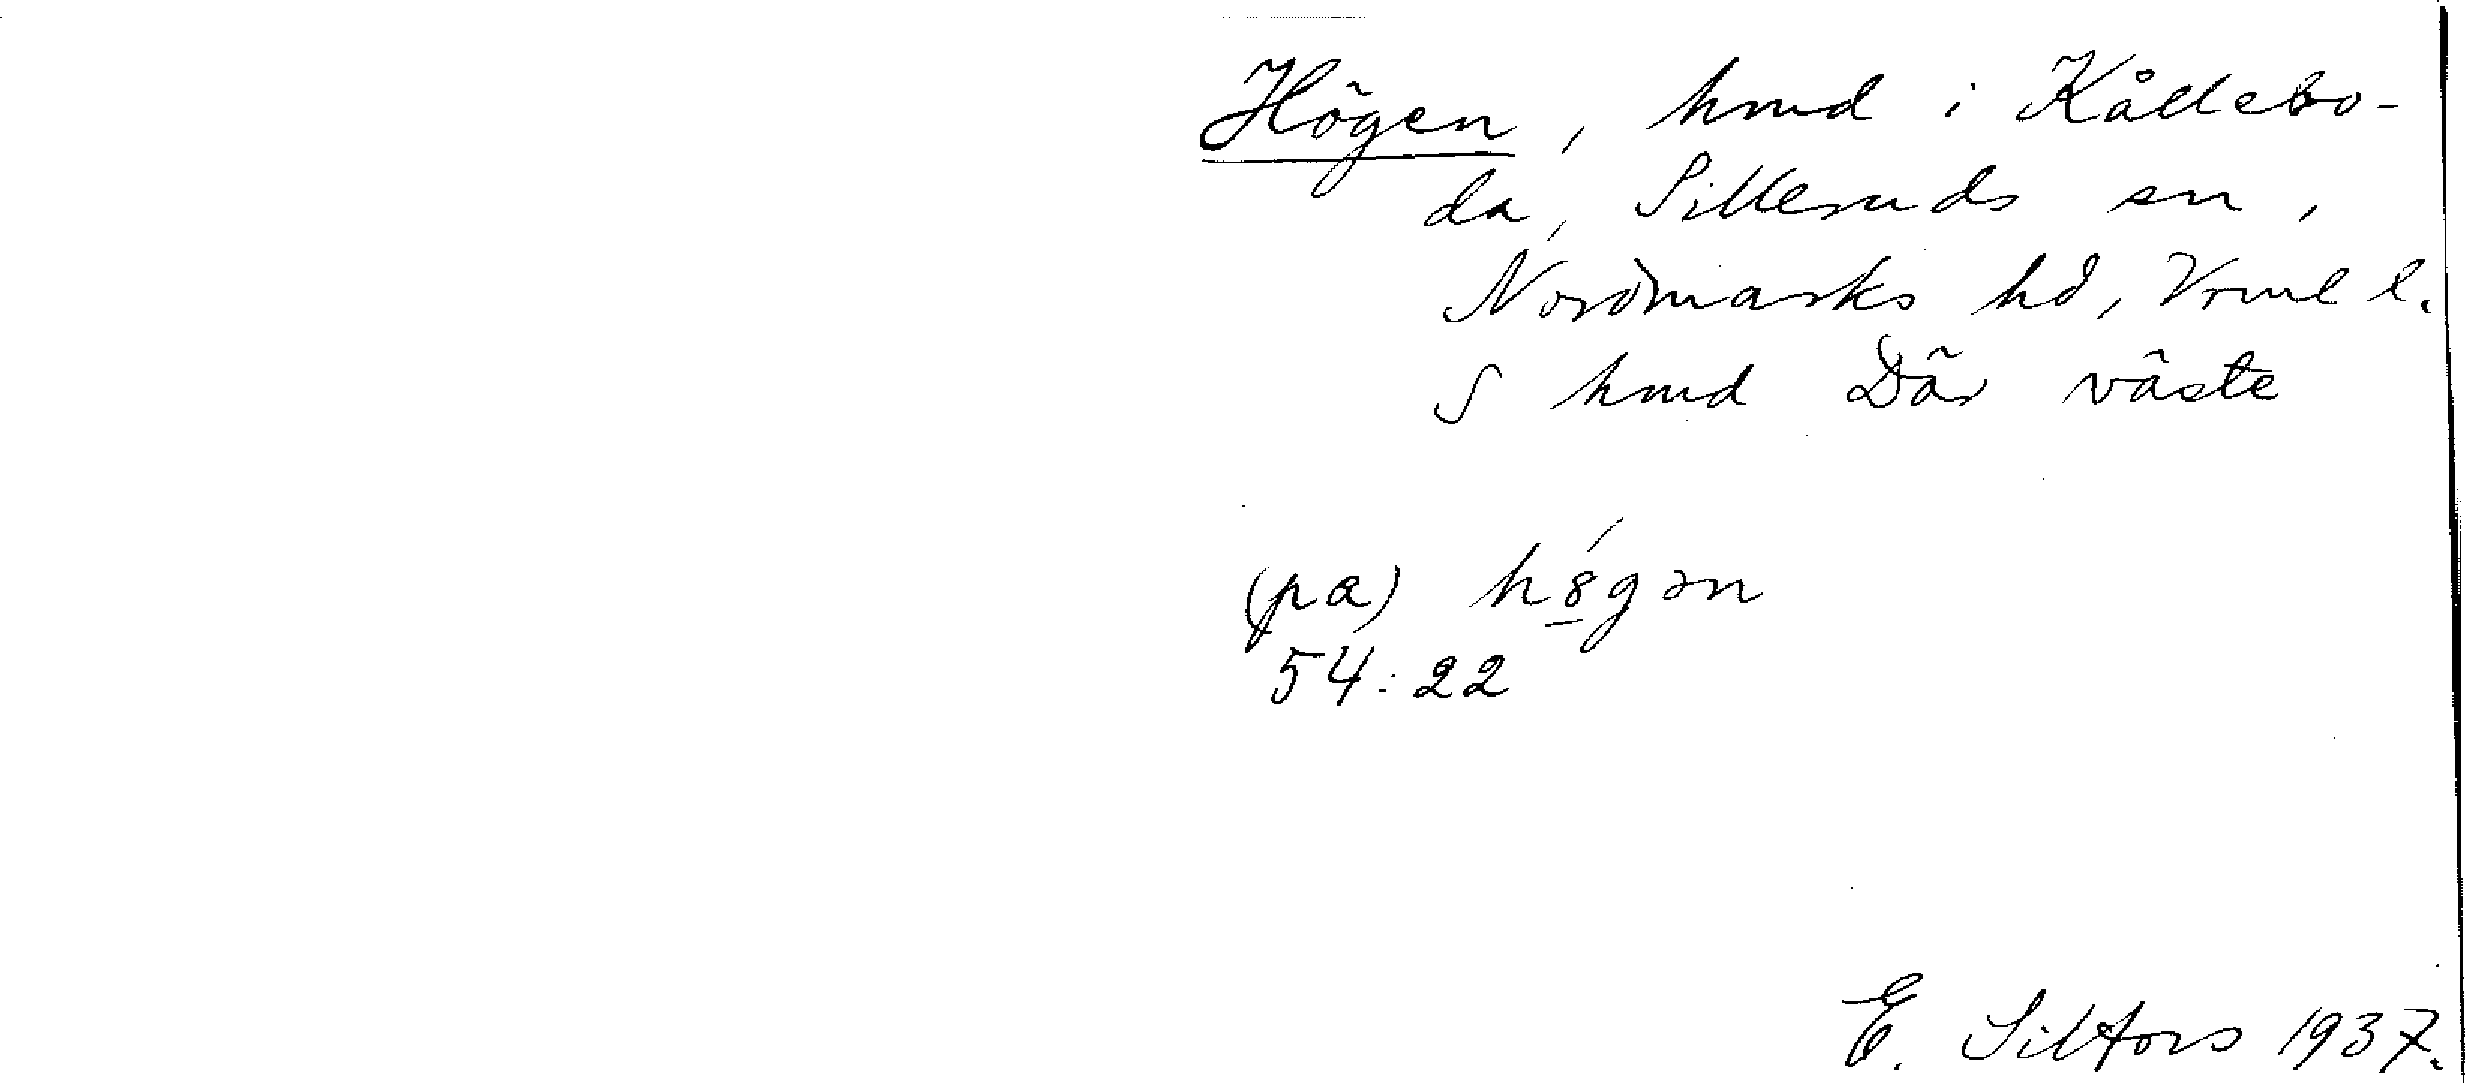 Högen, hmd i Källebo-
da, Silleruds sn,
Nordmarks hd, Vrml l.
S hmd Där väste
(pa) hǿgən
54:22
E. Silfors 1937.